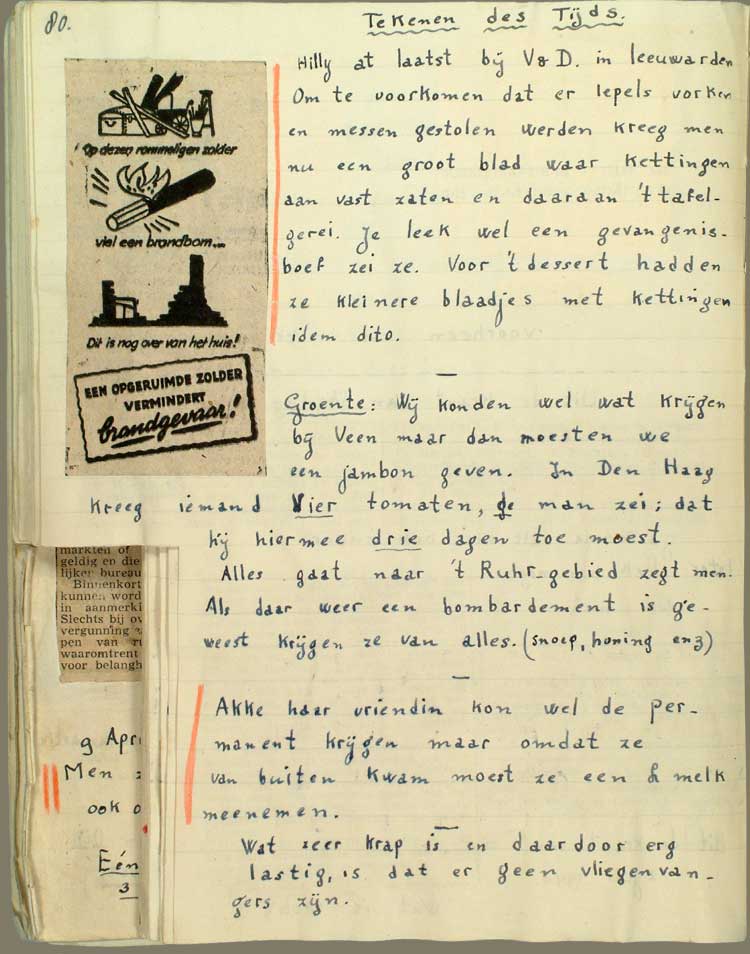 80.
Tekenen des Tijds.
Hilly at laatst bij V&D. in leeuwarden
Om te voorkomen dat er lepels vorken
en messen gestolen werden kreeg men
nu een groot blad waar kettingen
aan vast zaten en daaraan 't tafel-
gerei. Je leek wel een gevangenis-
boef zei ze. Voor 't dessert hadden
ze kleinere blaadjes met kettingen
idem dito.
Op dezen rommeligen zolder
viel een brandbom...
Dit is nog over van het huis!
EEN OPGERUIMDE ZOLDER
VERMINDERT
brandgevaar!
Groente: Wij konden wel wat krijgen
bij Veen maar dan moesten we
een jambon geven. In Den Haag
kreeg iemand Vier tomaten, de man zei; dat
hij hiermee drie dagen toe moest.
Alles gaat naar 't Ruhr-gebied zegt men.
Als daar weer een bombardement is ge-
weest krijgen ze van alles. (snoep, honing enz)
Akke haar vriendin kon wel de per-
manent krijgen maar omdat ze
van buiten kwam moest ze een L melk
meenemen.
Wat zeer krap is en daardoor erg
lastig, is dat er geen vliegenvan-
gers zijn.
markten of
geldig en die
lijker bureau
Binnenkort
kunnen word
in aanmerki
Slechts bij ov
vergunning
pen van
waaromtrent
voor belangh
9 Apri
Men
ook
Eén
3